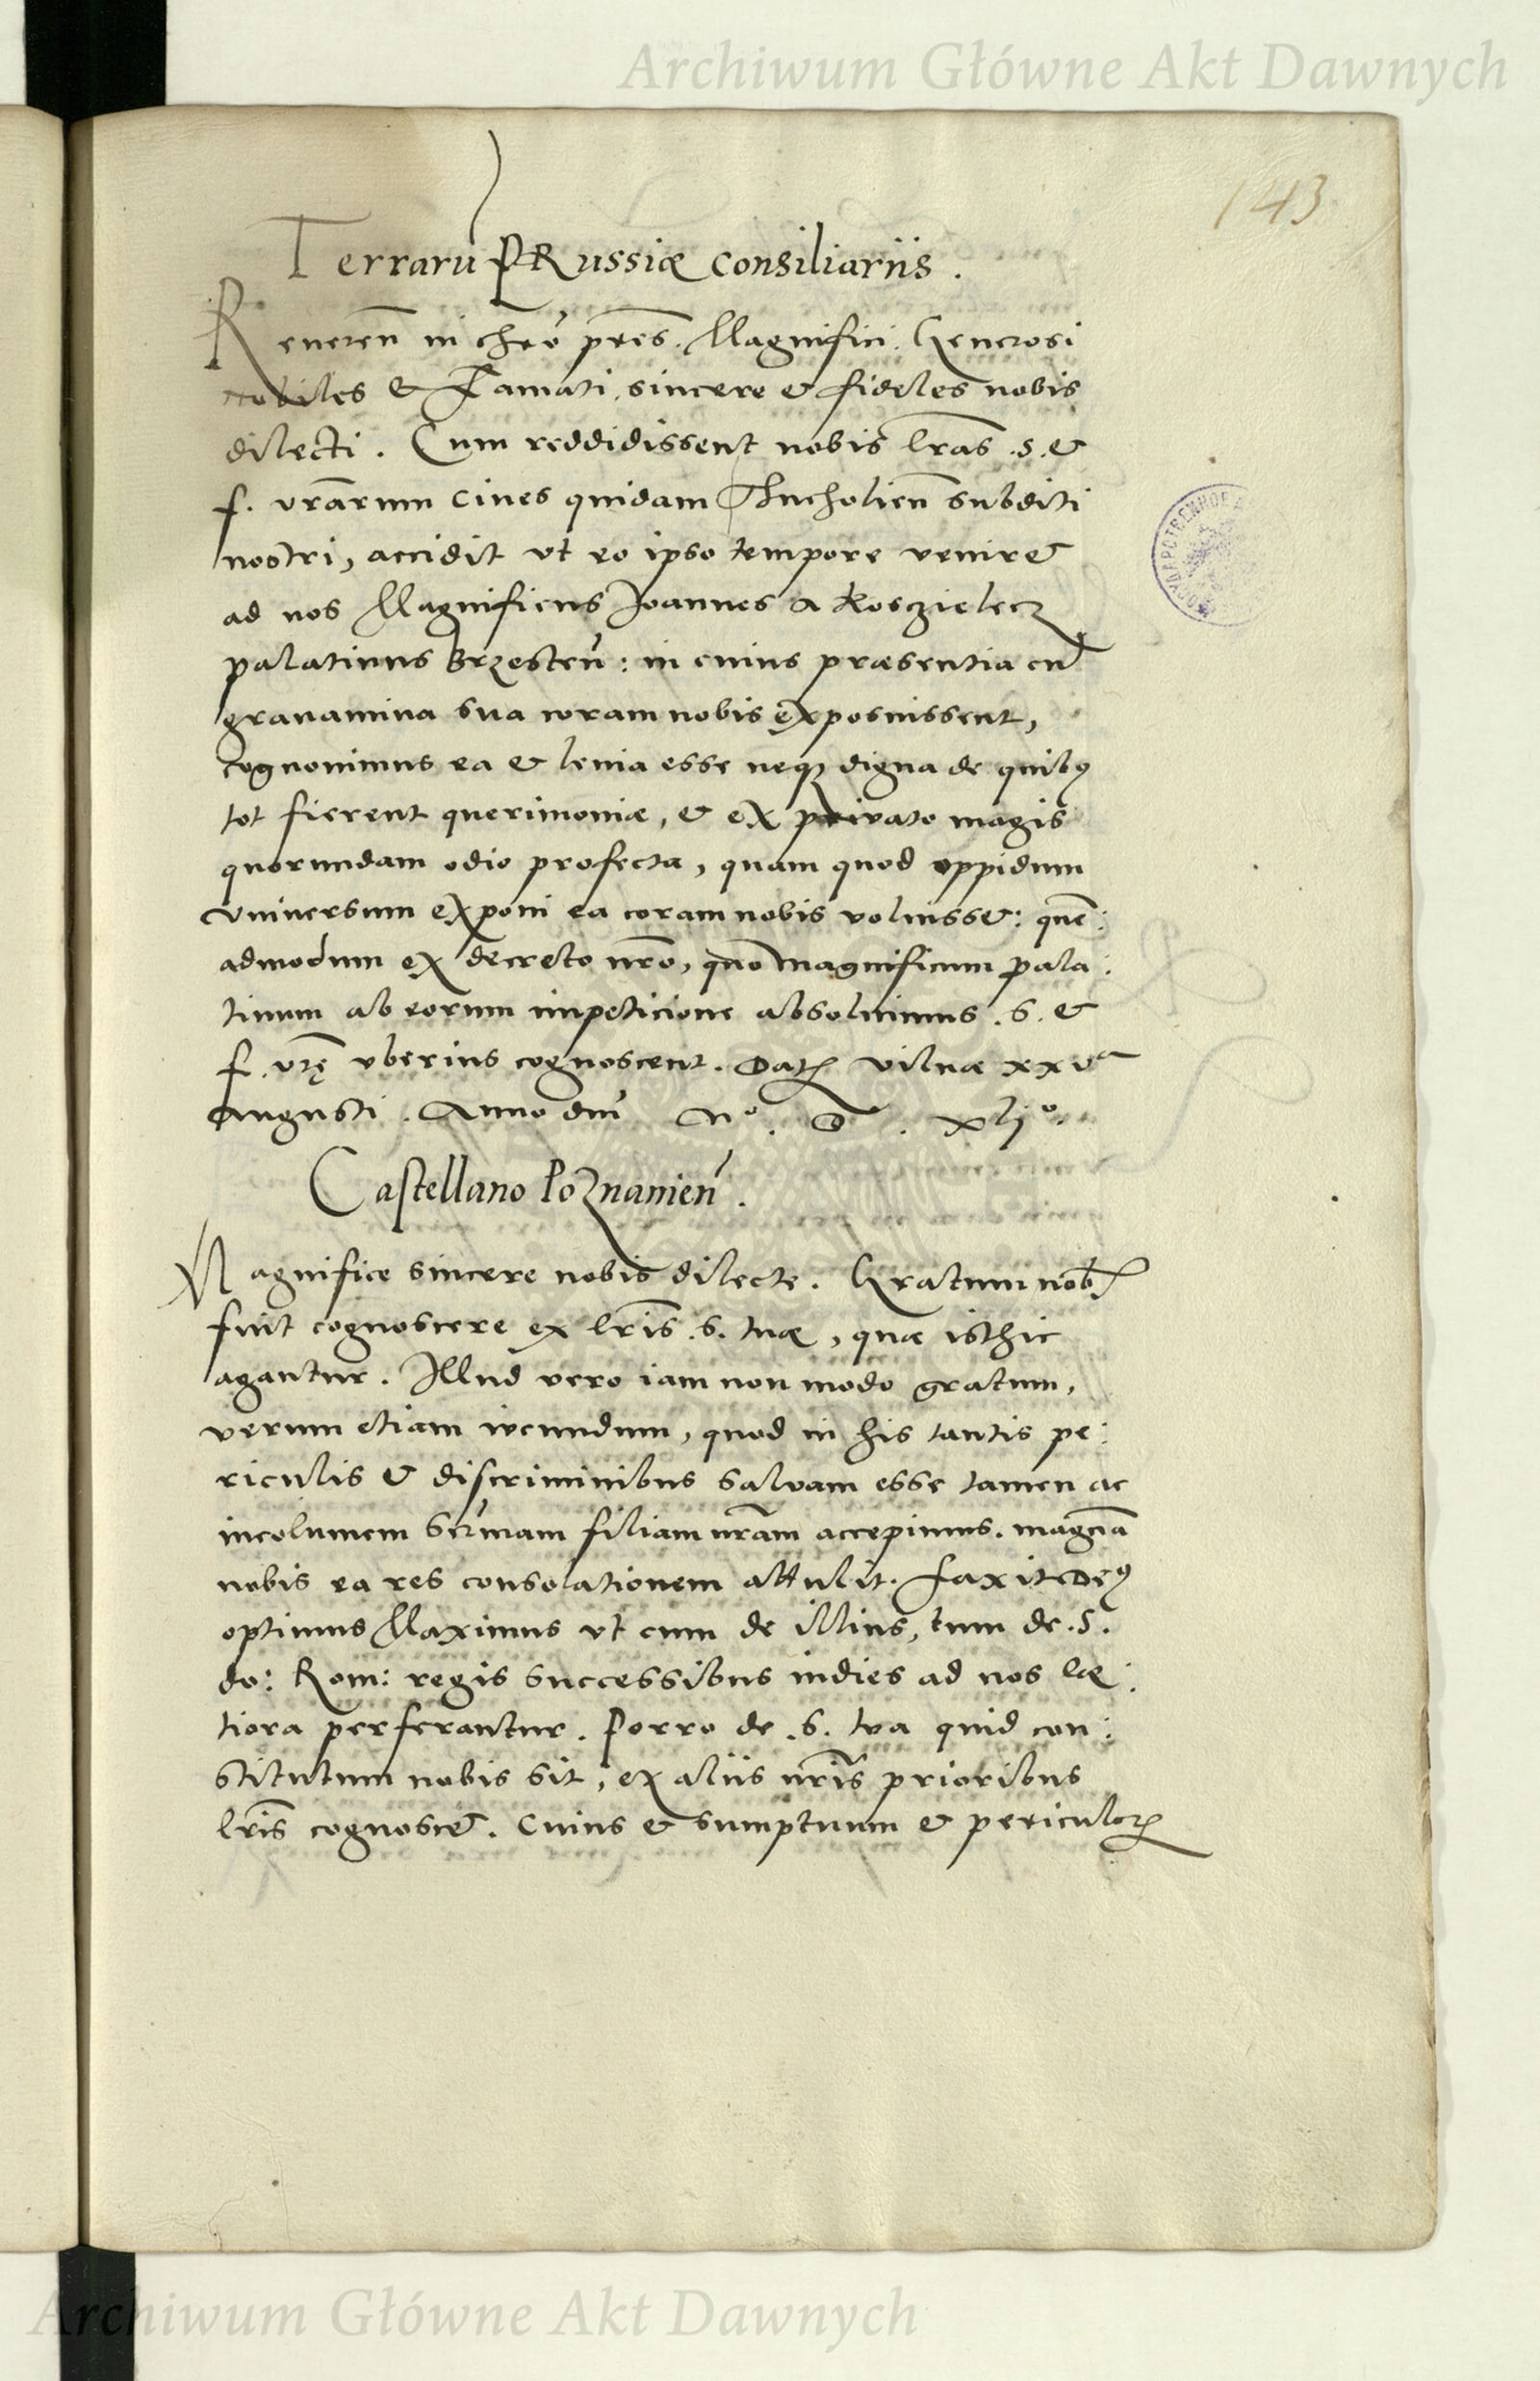 Archiwum Główne Akt Dawnych
143
Terrarū PRussiæ consiliariis.
Reueren̄ in chrō pr̄es. Magnifici. Generosi
nobiles & Famati, sincere & fideles nobis
dilecti. Cum reddidissent nobis lr̄as .s. &
f. vr̄arum ciues quidam Thucholien̄ subditi
nostri, accidit vt eo ipso tempore veniret
ad nos Magnificus Joannes a Koszielecz
palatinus Brzesten̄: in cuius præsentia cū
grauamina sua coram nobis exposuissent,
cognouimus ea & leuia esse neqꝫ digna de quibꝰ
tot fierent querimoniæ, & ex priuato magis
quorundam odio profecta, quam quod oppidum
vniuersum exponi ea coram nobis voluisset: quē:
admodum ex decreto nr̄o, quo magnificum pala:
tinum ab eorum impeticione absoluimus .S. &
f. vr̄ę vberius cognoscent. Datꝭ Vilnæ xxvᵃ
Augusti. Anno dn̄i Mº. D. xlijº.
Castellano Poznanien̄.
Magnifice sincere nobis dilecte. Gratum nob̄
fuit cognoscere ex lr̄is .S. tuæ, quæ isthic
agantur. Illud vero iam non modo gratum,
verum etiam iucundum, quod in his tantis pe:
riculis & discriminibus saluam esse tamen ac
incolumem Ser̄mam filiam nr̄am accepimus. magnā
nobis ea res consolationem attulit. Faxit Deꝰ
optimus Maximus vt cum de illius, tum de .S.
do: Rom: regis successibus indies ad nos læ:
tiora perferantur. Porro de .S. tua quid con:
stitutum nobis sit, ex aliis nr̄is prioribus
lr̄is cognoscet. Cuius & sumptuum & periculorꝝ
Archiwum Główne Akt Dawnych